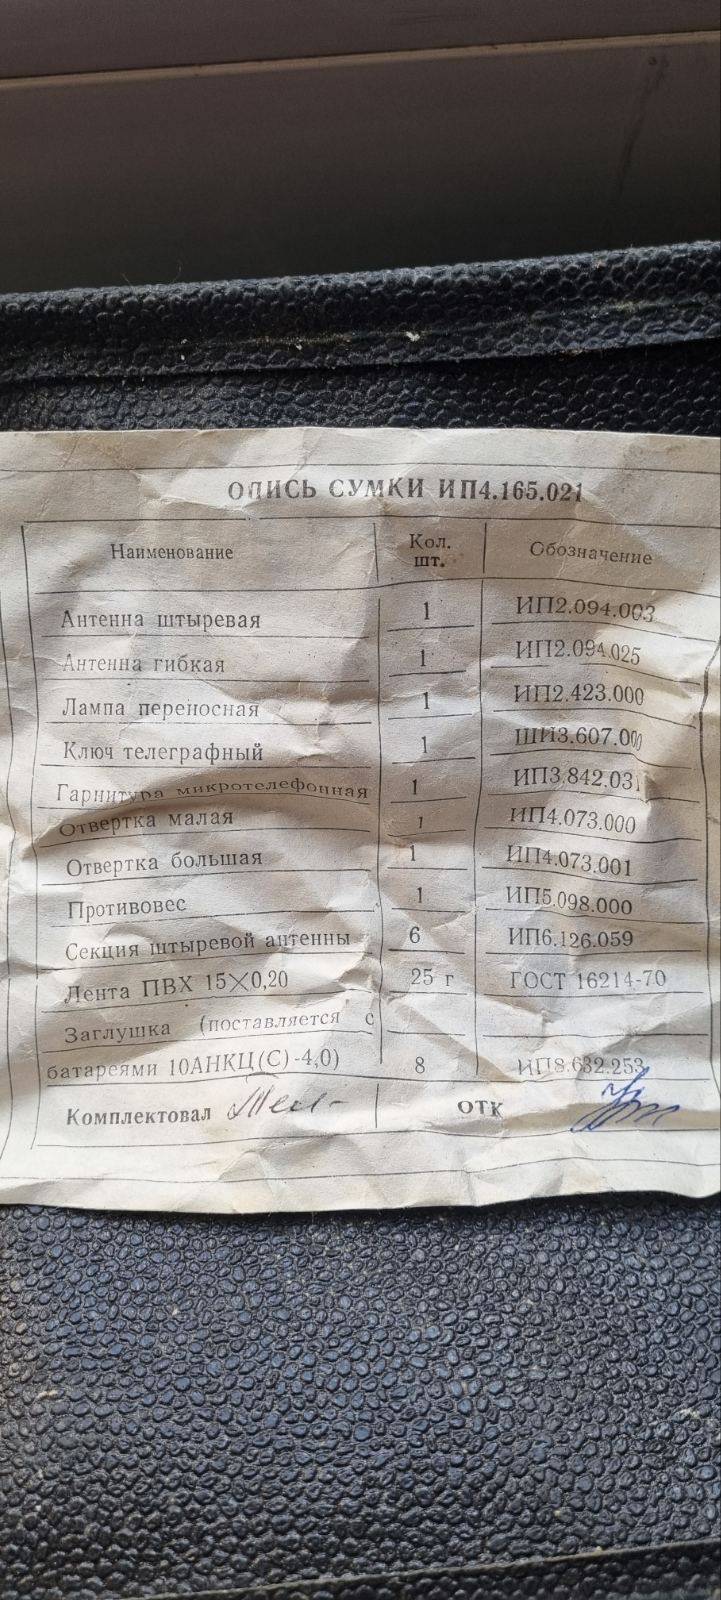 ОПИСЬ СУМКИ ИП4.165.021
Наименование Кол. шт. Обозначение
Антенна штыревая 1 ИП2.094.003
Антенна гибкая 1 ИП2.094.025
Лампа переносная 1 ИП2.423.000
Ключ телеграфный 1 ШИ3.607.000
Гарнитура микротелефонная 1 ИП3.842.031
Отвертка малая 1 ИП4.073.000
Отвертка большая 1 ИП4.073.001
Противовес 1 ИП5.098.000
Секция штыревой антенны 6 ИП6.126.059
Лента ПВХ 15×0,20 25 г ГОСТ 16214-70
Заглушка (поставляется с
батареями 10АНКЦ(С)-4,0) 8 ИП8.632.253
Комплектовал ОТК